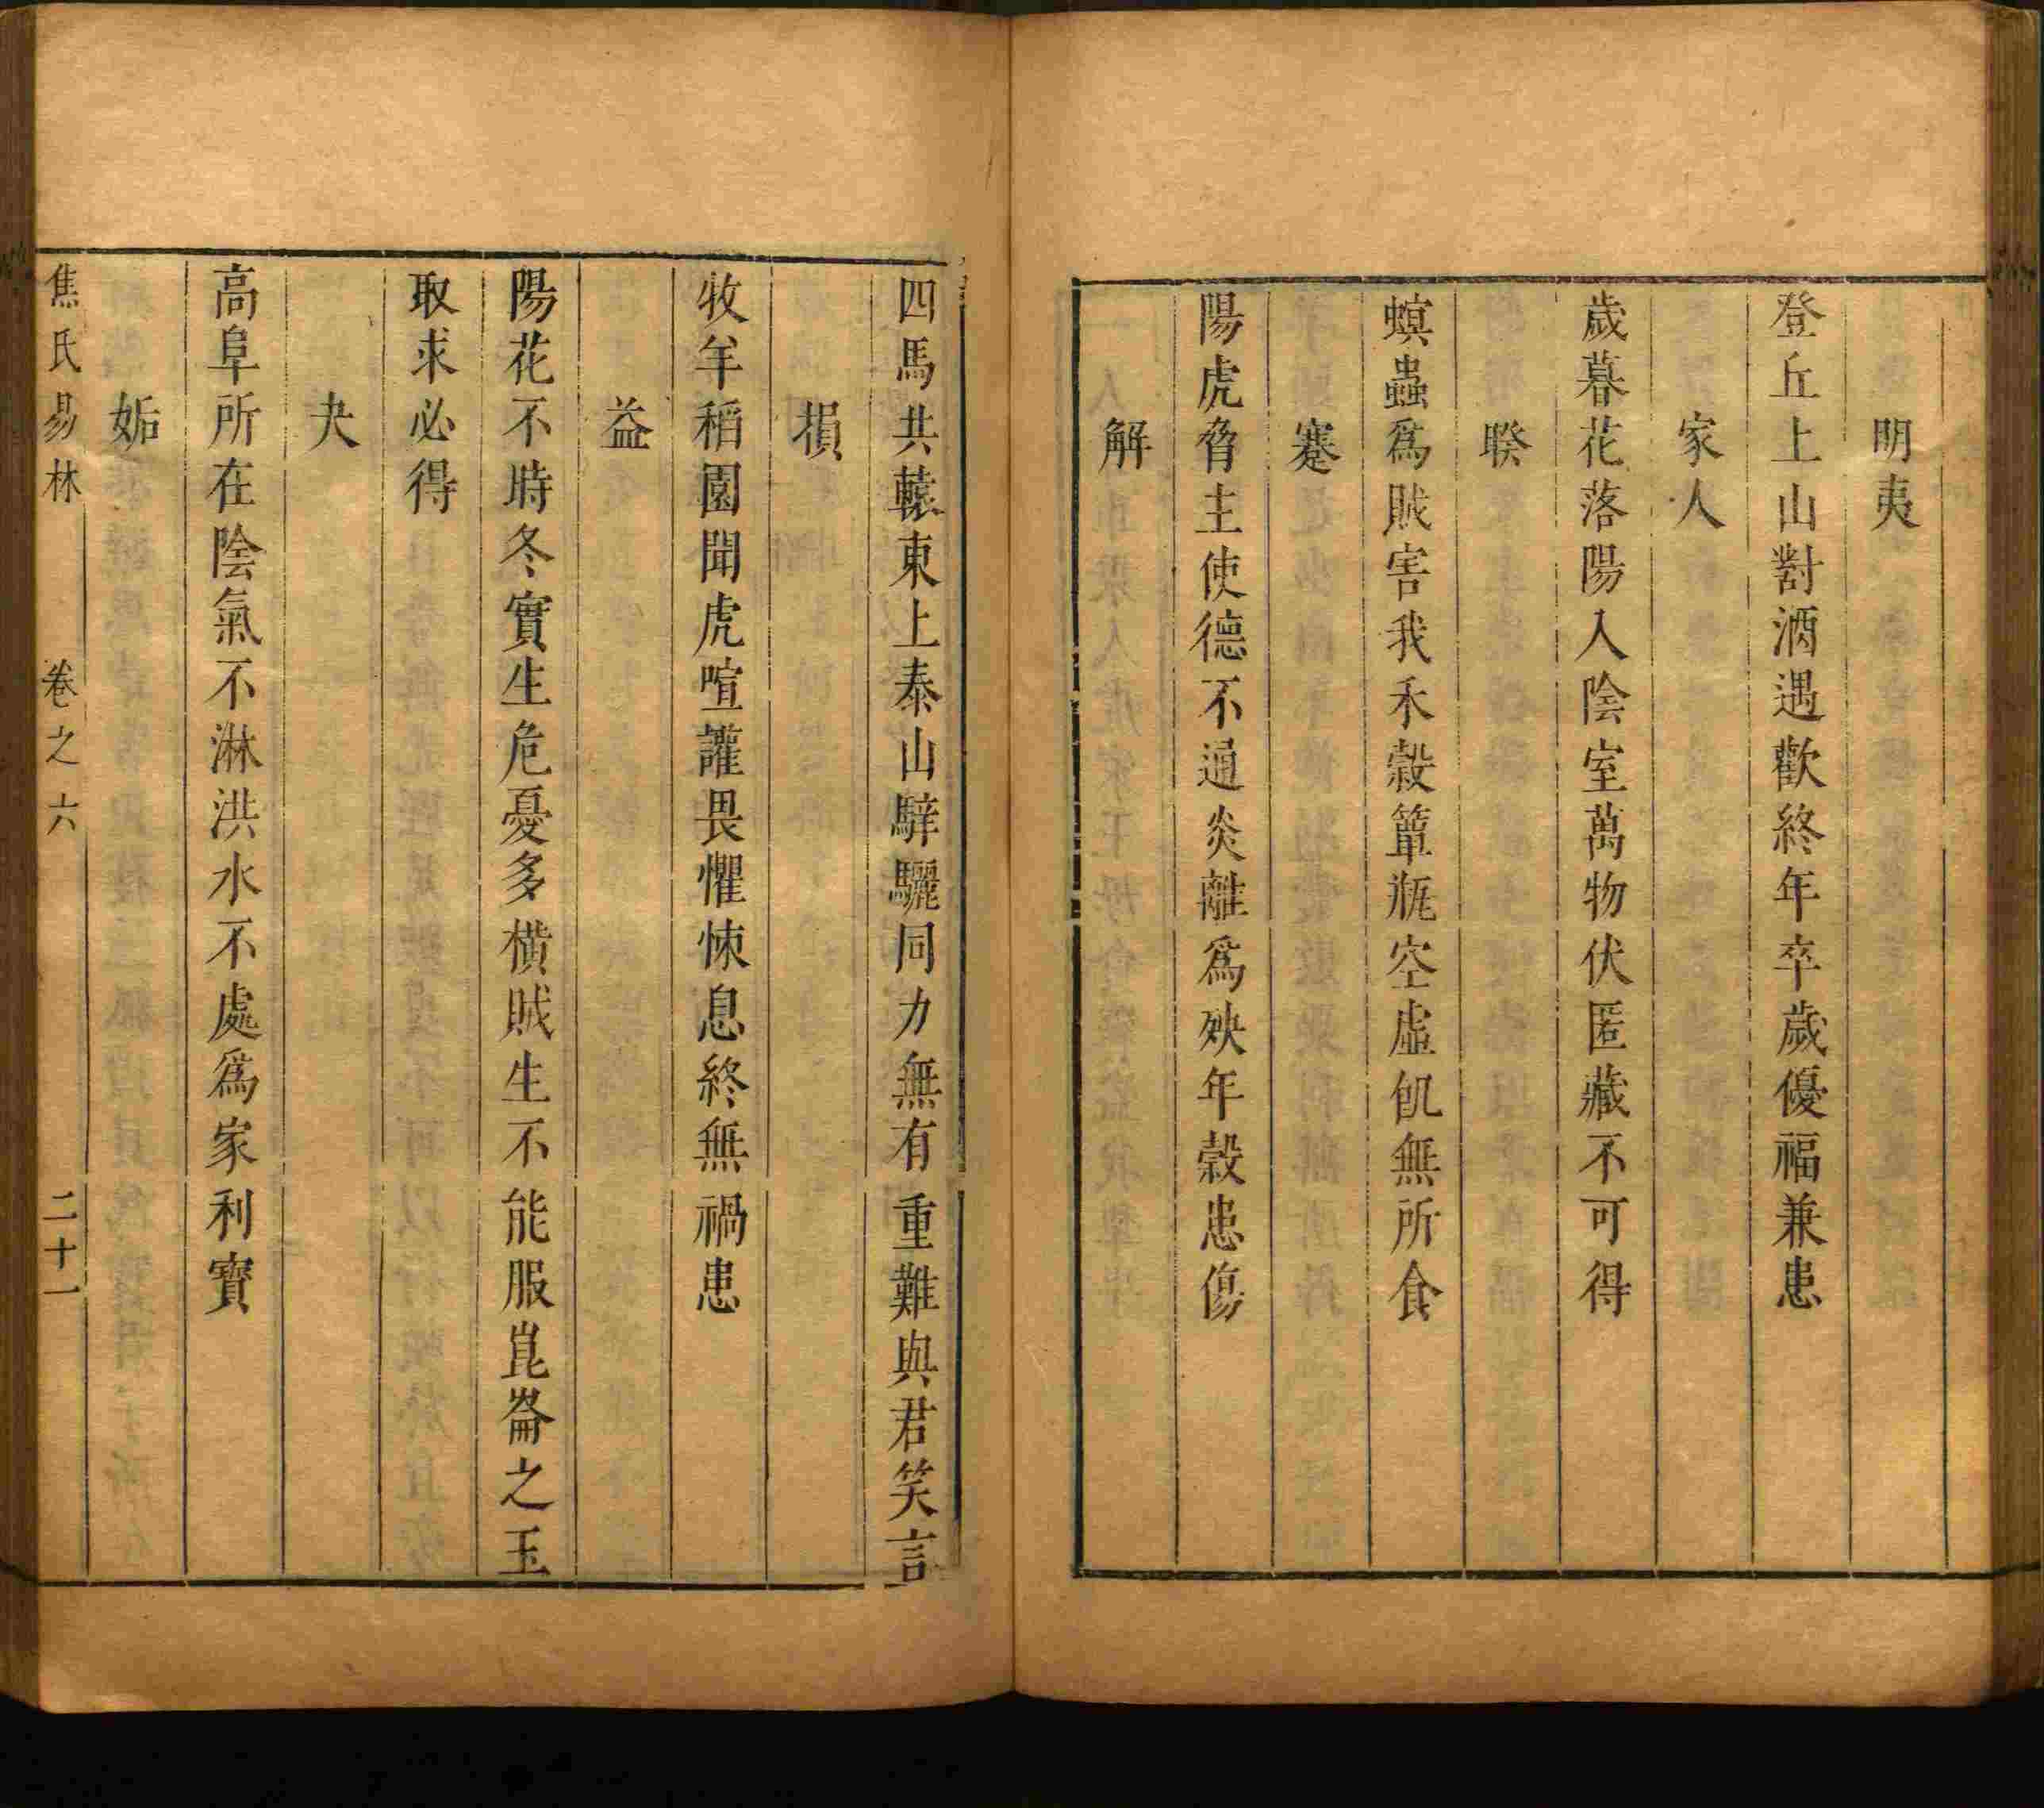 明夷
登丘上山對酒遇歡終年卒歲優福兼患
家人
歲暮花落陽入陰室萬物伏匿藏不可得
睽
螟蟲爲賊害我禾穀簞瓶空虛飢無所食
蹇
陽虎脅主使德不通炎離爲殃年穀患傷
解
四馬共轅東上泰山騂驪同力無有重難與君笑言
損
牧羊稻園聞虎喧讙畏懼悚息終無禍患
益
陽花不時冬實生危憂多橫賊生不能服崑崙之玉
取求必得
夬
高阜所在陰氣不淋洪水不處爲家利寶
姤
焦氏易林 卷之六 二十一